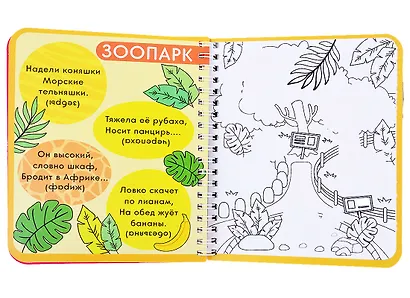 ЗООПАРК
Надели коняшки
Морские
тельняшки.
(зебра)
Тяжела её рубаха,
Носит панцирь....
(черепаха)
Он высокий,
словно шкаф,
Бродит в Африке...
(жираф)
Ловко скачет
по лианам,
На обед жуёт
бананы.
(обезьяна)